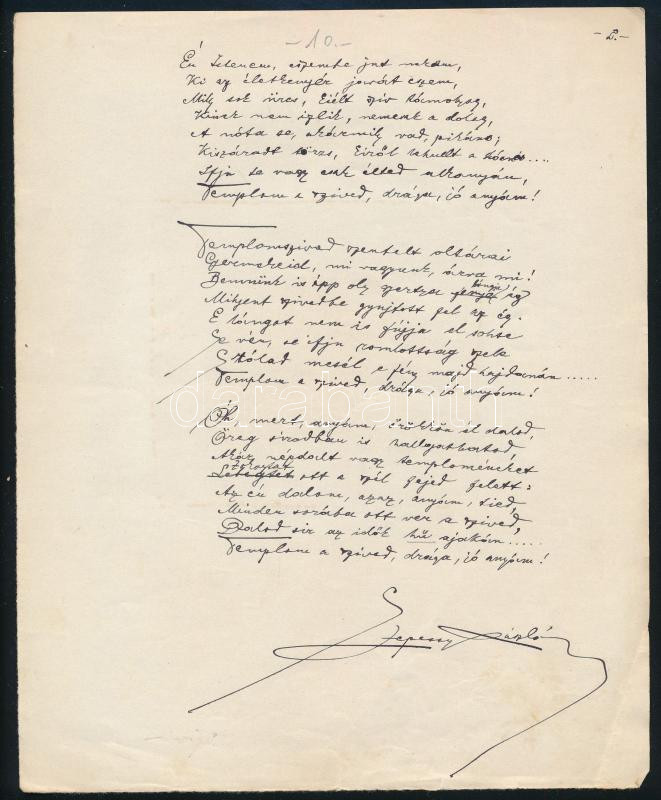 -10.-
-2.-
Én Istenem, eszembe jut nekem,
Ki az életkenyér javát eszem,
Mily sok üres, kiélt szív támolyog,
Kinek nem ízlik, nemcsak a dolog,
A nóta se, akármily vad, pikáns;
Kiszáradt törzs, kiről lehullt a
Ifju se vagy csak élted alkonyán,
Templom a szived, drága, jó anyám!
Templomszived szentelt oltárai
Gyermekeid, mi vagyunk, árva mi!
Bennünk is épp oly szertee fénye lángja ég
Mikjent szivedbe gyujtott fel az ég.
E lángot nem is fújja el sohse
Se vén, se ifju romlottság szele
S Rólad mesél e fény majd hajdanán.....
Templom a szived, drága, jó anyám!
Óh, mert, anyám, örökkön él dalod,
Öreg sirodban is hallgathatod,
Akár népdalt vagy temploméneket
ott a szél fejed felett:
Az én dalom, azaz, anyám, tied,
Minden sorába ott ver a szived,
Dalod sir az idők hű ajakán.....
Templom a szived, drága, jó anyám!
Szepessy László
darabanth